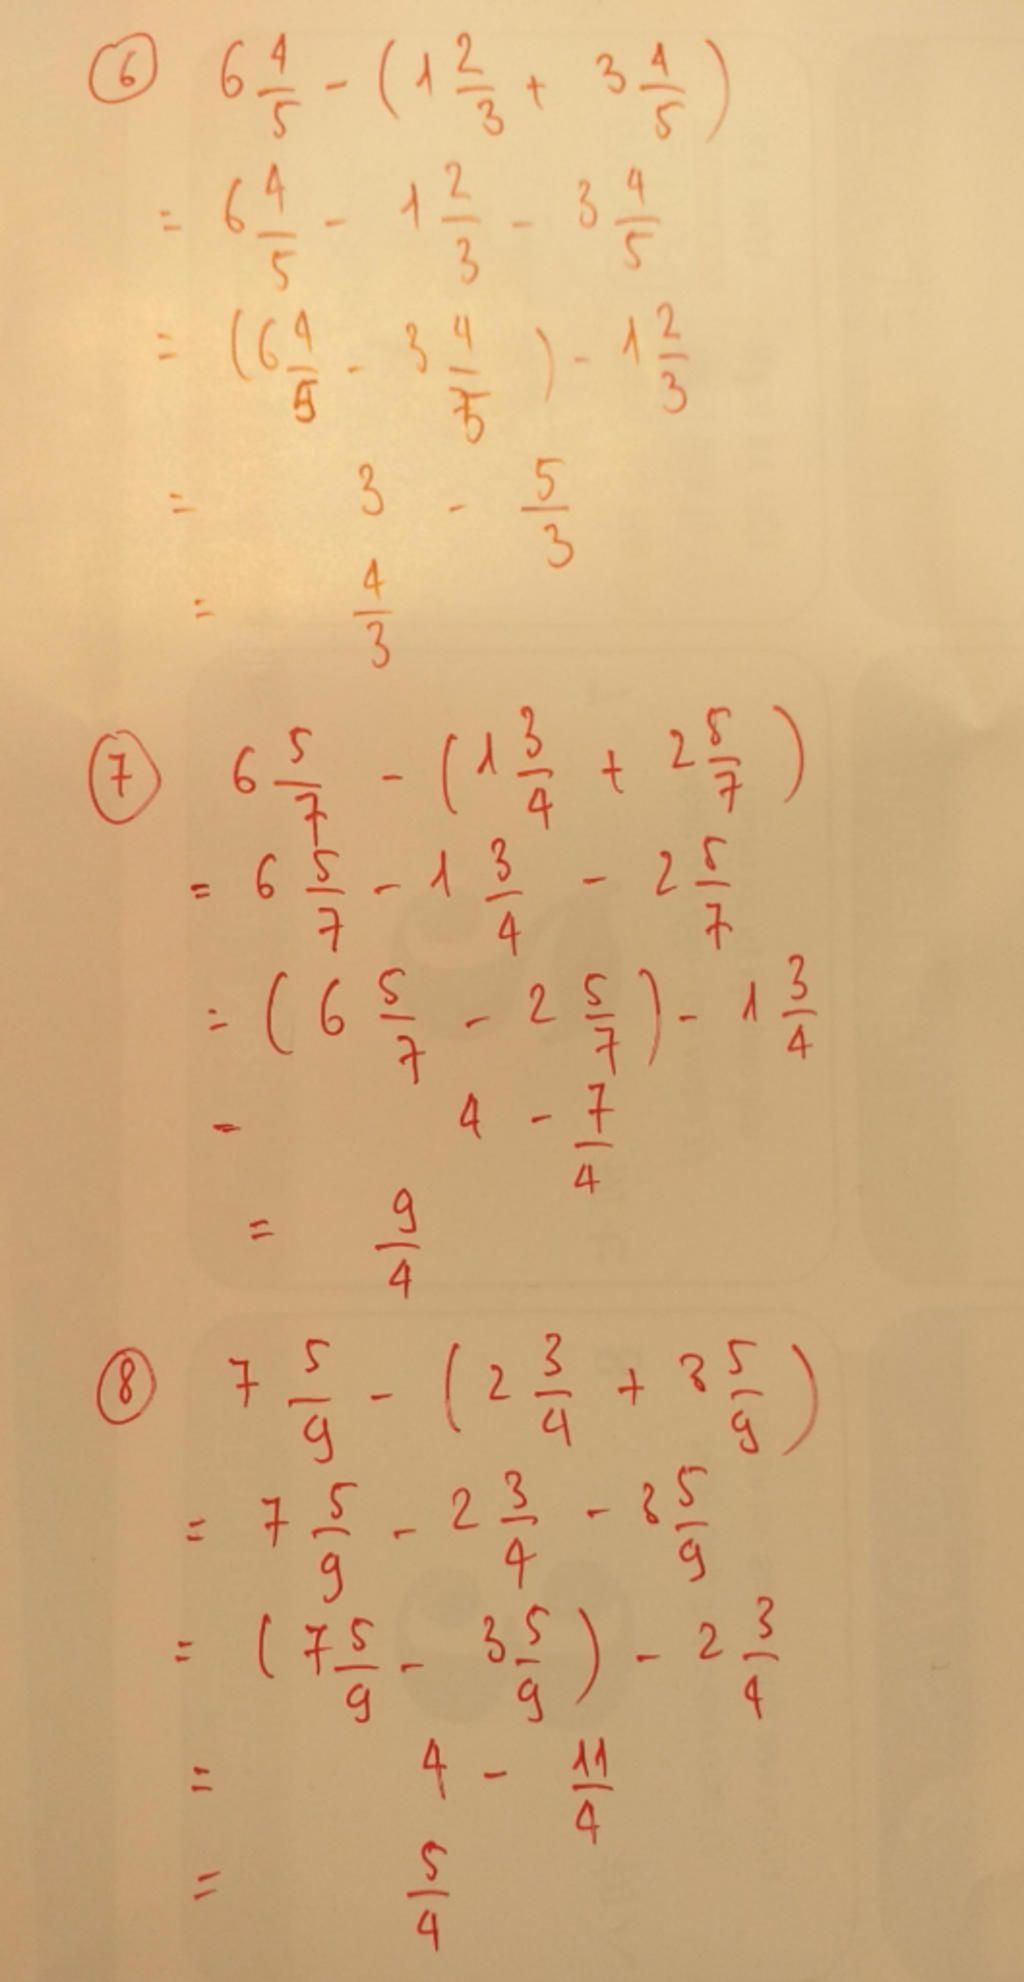 ⑥ 6 4/5 - (1 2/3 + 3 4/5)
= 6 4/5 - 1 2/3 - 3 4/5
= (6 4/5 - 3 4/5) - 1 2/3
= 3 - 5/3
= 4/3
⑦ 6 5/7 - (1 3/4 + 2 5/7)
= 6 5/7 - 1 3/4 - 2 5/7
= (6 5/7 - 2 5/7) - 1 3/4
= 4 - 7/4
= 9/4
⑧ 7 5/9 - (2 3/4 + 3 5/9)
= 7 5/9 - 2 3/4 - 3 5/9
= (7 5/9 - 3 5/9) - 2 3/4
= 4 - 11/4
= 5/4